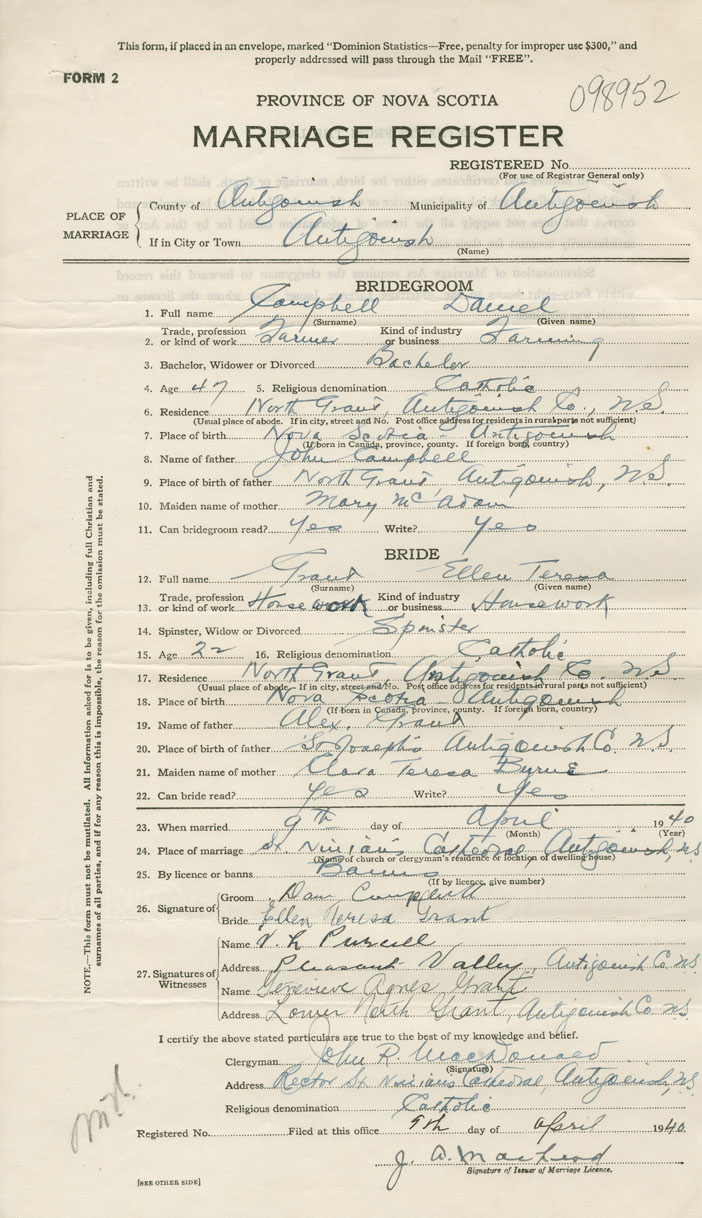 This form, if placed in an envelope, marked "Dominion Statistics—Free, penalty for improper use $300," and
properly addressed will pass through the Mail "FREE".
FORM 2
098952
PROVINCE OF NOVA SCOTIA
MARRIAGE REGISTER
REGISTERED No.
(For use of Registrar General only)
PLACE OF MARRIAGE
County of Antigonish Municipality of Antigonish
If in City or Town Antigonish
(Name)
BRIDEGROOM
1. Full name Campbell Daniel
(Surname) (Given name)
2. Trade, profession or kind of work Farmer Kind of industry or business Farming
3. Bachelor, Widower or Divorced Bachelor
4. Age 47 5. Religious denomination Catholic
6. Residence North Grant, Antigonish Co., N.S.
(Usual place of abode. If in city, street and No. Post office address for residents in rural parts not sufficient)
7. Place of birth Nova Scotia - Antigonish
(If born in Canada, province, county. If foreign born, country)
8. Name of father John Campbell
9. Place of birth of father North Grant Antigonish, N.S.
10. Maiden name of mother Mary McAdam
11. Can bridegroom read? Yes Write? Yes
BRIDE
12. Full name Grant Ellen Teresa
(Surname) (Given name)
13. Trade, profession or kind of work Housework Kind of industry or business Housework
14. Spinster, Widow or Divorced Spinster
15. Age 22 16. Religious denomination Catholic
17. Residence North Grant, Antigonish Co. N.S
(Usual place of abode— If in city, street and No. Post office address for residents in rural parts not sufficient)
18. Place of birth Nova Scotia - Antigonish
(If born in Canada, province, county. If foreign born, country)
19. Name of father Alex. Grant
20. Place of birth of father St Joseph's Antigonish Co. N.S.
21. Maiden name of mother Clara Teresa Byrne
22. Can bride read? Yes Write? Yes
23. When married 9th day of April 1940
(Month) (Year)
24. Place of marriage St. Ninian's Cathedral Antigonish, N.S
(Name of church or clergyman's residence or location of dwelling house)
25. By licence or banns Banns
(If by licence, give number)
26. Signature of
Groom Dan Campbell
Bride Ellen Teresa Grant
27. Signatures of Witnesses
Name V. L Purcell
Address Pleasant Valley, Antigonish Co. N.S.
Name Genevieve Agnes Grant
Address Lower North Grant, Antigonish Co N.S.
I certify the above stated particulars are true to the best of my knowledge and belief.
Clergyman John R. MacDonald
(Signature)
Address Rector St. Ninian's Cathedral, Antigonish, N.S
Religious denomination Catholic
Registered No. Filed at this office 9th day of April 1940.
J. A. MacLeod
Signature of Issuer of Marriage Licence.
[SEE OTHER SIDE]
NOTE.—This form must not be mutilated. All information asked for is to be given, including full Christian and
surnames of all parties, and if for any reason this is impossible, the reason for the omission must be stated.